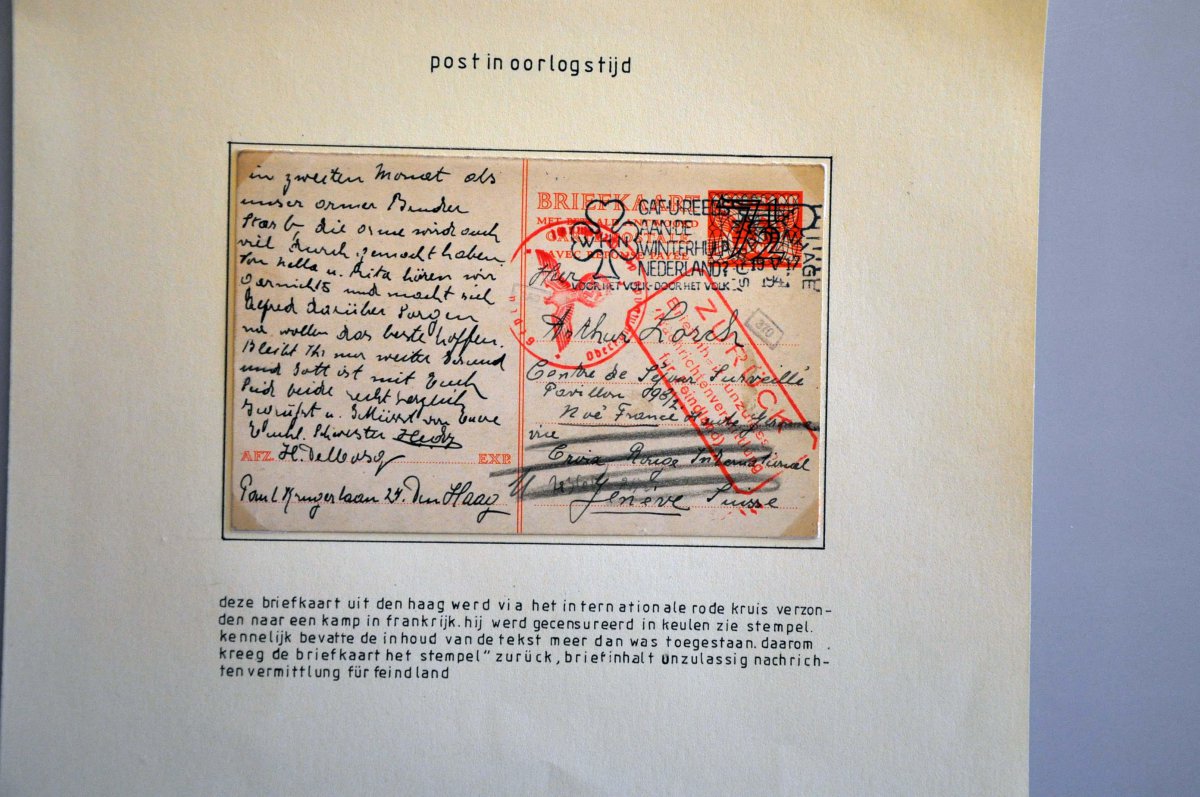 post in oorlogstijd
in zweiten Monat als
unser armer Bruder
Starb die arme wird auch
viel durch gemacht haben.
Von Hella u. Rita hören wir
garnichts und macht sich
Alfred darüber Sorgen
wollen das beste hoffen.
Bleibt Ihr nur weiter Gesund
und Gott ist mit Euch
Seid beide recht herzlich
Gegrüsst u. Geküsst von Eure
Schwester Hedy
AFZ. H. Dellberg EXP.
Paul Krugerlaan 24. Den Haag
BRIEFKAART
MET BETAALD ANTWOORD
CARTE POSTALE
AVEC REPONSE PAYEE
7½
GAF U REEDS
AAN DE
WINTERHULP
NEDERLAND?
VOOR HET VOLK - DOOR HET VOLK
WHN
'S GRAVENHAGE
19 V
Arthur Lorch
Centre de Séjour Surveillé
Pavillon
Noé France
via
Croix Rouge International
Genève Suisse
ZURÜCK
Nachrichtenvermittlung
370
deze briefkaart uit den haag werd via het internationale rode kruis verzon-
den naar een kamp in frankrijk. hij werd gecensureerd in keulen zie stempel.
kennelijk bevatte de inhoud van de tekst meer dan was toegestaan. daarom
kreeg de briefkaart het stempel" zurück, briefinhalt unzulassig nachrich-
ten vermittlung für feindland